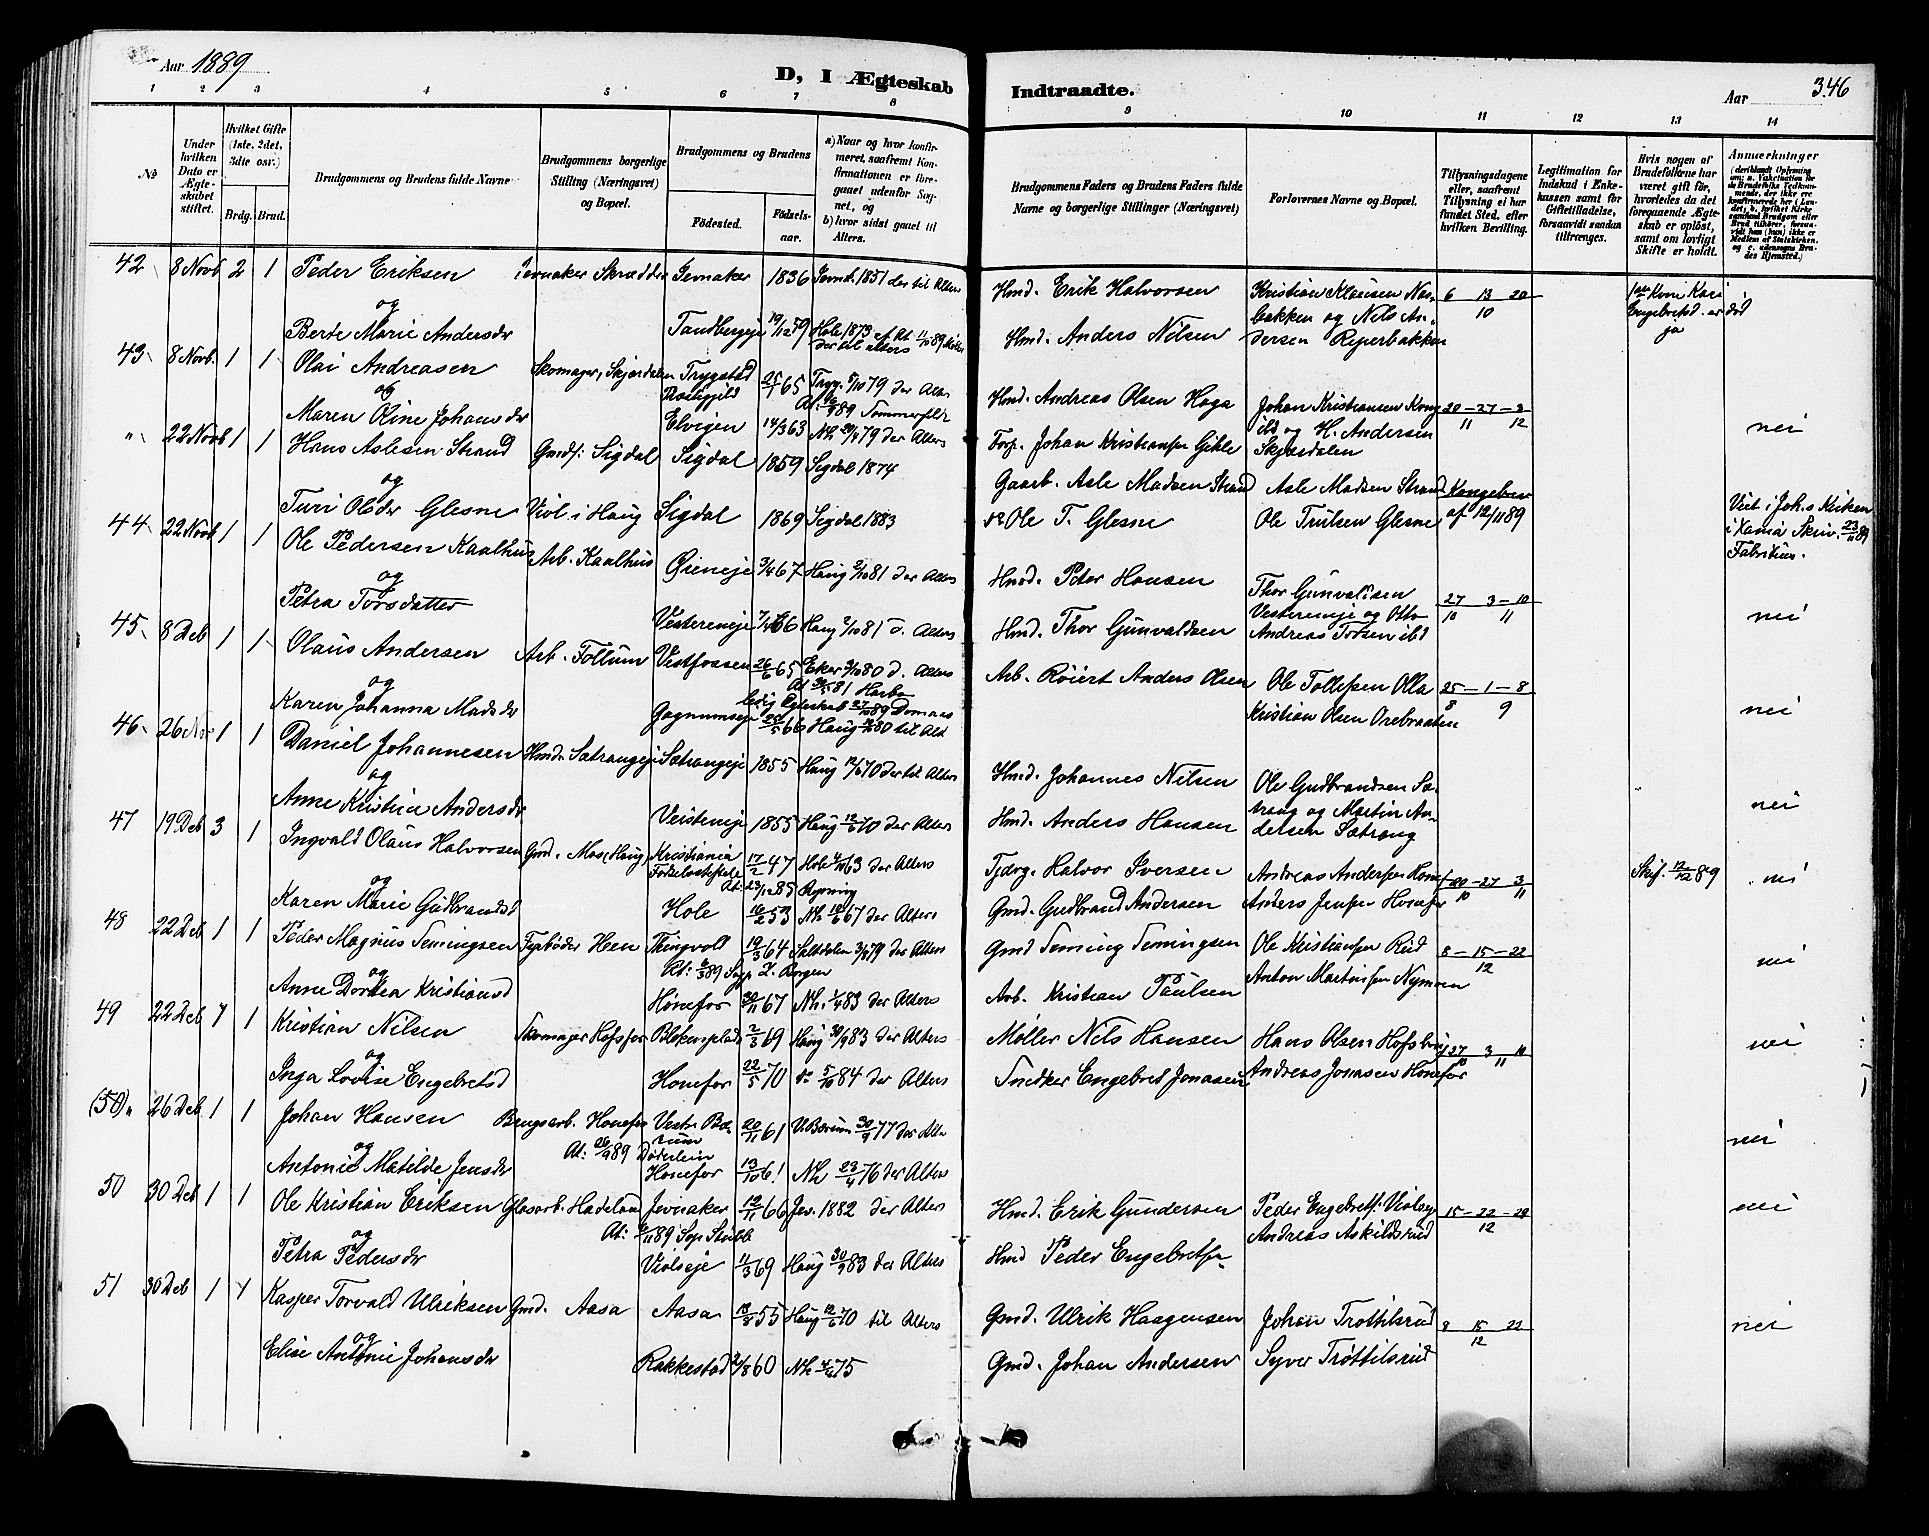 Aar 1889
D, I Ægteskab Indtraadte.
Aar 346
1 2 3 4 5 6 7 8 9 10 11 12 13 14
No
Under hvilken Dato er Ægteskabet stiftet.
Hvilket Gifte (1ste, 2det, 3die osv.)
Brdg. Brud.
Brudgommens og Brudens fulde Navne
Brudgommens borgerlige Stilling (Næringsvei) og Bopæl.
Brudgommens og Brudens
Fødested.
Fødselsaar.
a) Naar og hvor konfirmeret, saafremt Konfirmationen er foregaaet udenfor Sognet, og
b) hvor sidst gaaet til Alters.
Brudgommens Faders og Brudens Faders fulde Navne og borgerlige Stillinger (Næringsvei)
Forlovernes Navne og Bopæl.
Tillysningsdagene eller, saafremt Tillysning ei har fundet Sted, efter hvilken Bevilling.
Legitimation for Indskud i Enkekassen samt for Giftetilladelse, forsaavidt saadan tiltrænges.
Hvis nogen af Brudefolkene har været gift før, hvorledes da det foregaaende Ægteskab er opløst, samt om lovligt Skifte er holdt.
Anmærkninger
42 8 Novb 2 1 Peder Eriksen Jevnaker Skrædder Jevnaker 1836 Jevnak. 1851 der til Alters Hmd. Erik Halvorsen Kristian Klausen Nor- 6 13 20 1ste Kone Kari
og
bakken og Nils An- 10 Engebretsd. er død
Berte Marie Andersdr Tandbergeje 19/12 59 Hole 1873 Hmd. Anders Nilsen dersen Reperbakken ja
der til alters
43 8 Novb. 1 1 Olai Andreasen Skomager, Skjærdalen Trygstad 25/1 65 Tryg. 5/10 79 der Alters Hmd. Andreas Olsen Haga Johan Kristiansen Kong 20 - 27 - 3
og Præstegjeld At. 89 Sommerfeldt
Maren Oline Johansdr Elvigen 14/3 63 Nh. 20/4 79 der Alters Forp. Johan Kristiansen Gihle ibd og H. Andersen 11 12 nei
Skjærdalen
" 22 Novb 1 1 Hans Aslesen Strand Gmds. Sigdal Sigdal 1859 Sigdal 1874 Gaarb. Asle Madsen Strand Asle Madsen Strand Kongebrev
og
Turi Olsdr Glesne Viol i Haug Sigdal 1869 Sigdal 1883 do Ole T. Glesne Ole Trulsen Glesne af 12/11 89 Viet i Joh.s Kirken
i Xania Skriv. 23/11 89
Fabritius.
44 22 Novb 1 1 Ole Pedersen Kaalhus Arb. Kaalhus Øieneje 3/4 67 Haug 2/10 81 der Alters Hmd. Peter Hansen Thor Gunvaldsen 27 3 - 10
og
Petra Torsdatter Vestereneje 7/4 66 Haug 2/10 81 d. Alters Hmd. Thor Gunvaldsen Vestereneje og Otto 10 11 nei
Andreas Torsen ibd
45 8 Deb 1 1 Olaus Andersen Arb. Follum Vestfossen 26/6 65 Eker 3/10 80 d. Alters Arb. Røiert Anders Olsen Ole Tollefsen Olla 25 - 1 - 8
og At 81 Harbo
ledig Egteskab 27/10 89 Domaas
Karen Johanna Madsdr Gagnumseje 24/5 66 Haug 80 til Alt Kristian Olsen Orebraaten 8 9 nei
46 26 Nov 1 1 Daniel Johannesen Hmd. Sætrangeje Sætrangeje 1855 Haug 12/6 70 der til Alters Hmd. Johannes Nilsen Ole Gudbrandsen Sæ-
og
Anne Kristine Andersdr Veisteneje 1855 Haug 12/6 70 der Alters Hmd. Anders Hansen trang og Martin An- nei
dersen Sætrang
47 19 Deb 3 1 Ingvald Olaus Halvorsen Gmd. Mos (Haug) Kristiania 17/2 47 Hole 63 der Alters Tjdrg. Halvor Iversen Andreas Andersen Honef 20 - 27 3 Skif. 12/12 89 nei
og Fødselsstiftelse At: 23/12 85 Rynning
Karen Marie Gudbrandsd Hole 16/2 53 Nh. 67 der Alters Gmd. Gudbrand Andersen Anders Jensen Honefos 10 11
48 22 Deb 1 1 Peder Magnus Temingsen Fyrbøder Hen Thingvold 19/3 64 Saltdalen 3/8 79 der Alters Gmd Teming Temingsen Ole Kristiansen Rud 8 - 15 - 22
og At: 6/3 89 Sogn. I. Borgen
Anne Dortea Kristiansd Hønefos 20/11 67 Nh. 1/4 83 der Alters Arb. Kristian Paulsen Anton Martinsen Nymoen 12 nei
49 22 Deb 1 1 Kristian Nilsen Skomager Hofsfos Blekenplads 2/3 69 Haug 30/9 83 der Alters Møller Nils Hansen Hans Olsen Hofsbrug 27 3 10 nei
og
Inga Lovise Engebretsd Honefos 22/5 70 do 5/10 84 der Alters Snedker Engebret Jonasen Andreas Jonasen Honefos 10 11
(50) " 26 Deb 1 1 Johan Hansen Brugsarb. Honefos Vestre Bæ- 20/11 61 V. Bærum 30/9 77 der Alte
og At: 26/9 89 Døderlein rum
Antonie Matilde Jensdr Honefos 13/10 61 Nh 23/4 76 der Alters nei
50 30 Deb 1 1 Ole Kristian Eriksen Glasarb. Hadeland Jevnaker 12/11 66 Jev. 1882 der Alters Hmd. Erik Gundersen Peder Engebretsen Violsg 15 - 22 - 29 nei
og At: 11 89 Sogn Stubb
Petra Pedersdr Violseje 11/3 69 Haug 30/9 83 der Alters Hmd Peder Engebretsen Andreas Askildsrud 12
51 30 Deb 1 1 Kasper Torvald Ulriksen Gmd. Aasa Aasa 13/3 55 Haug 12/6 70 til Alters Gmd. Ulrik Haagensen Johan Trøttilsrud 8 15 22 nei
og
Elise Antonie Johansdr Rakkestad 2/8 60 Nh 75 Gmd. Johan Andersen Syver Trøttilsrud 12